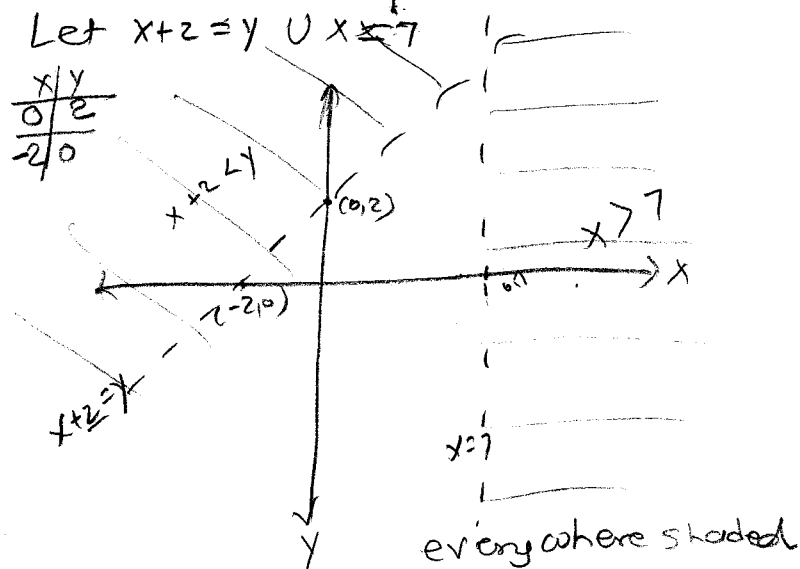 Let x+2 = y ∪ x = 7
x | y
0 | 2
-2 | 0
x+2 < y
(0,2)
x > 7
x
(-2,0)
x+2=y
x=7
y
everywhere shaded